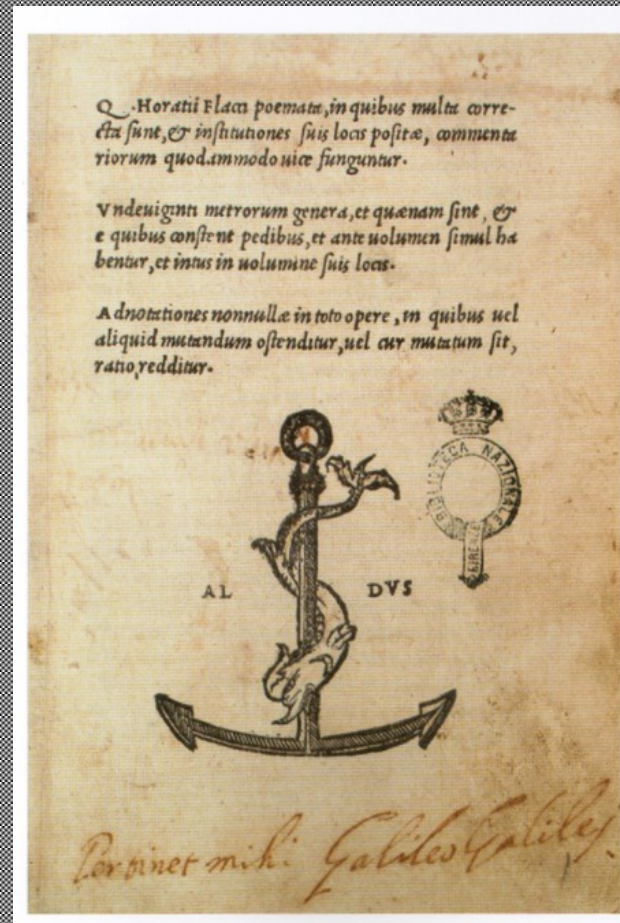 Q. Horatii Flacci poemata, in quibus multa corre-
cta sunt, & institutiones suis locis positæ, commenta
riorum quodammodo uice funguntur.
Vndeuiginti metrorum genera, et quænam sint, &
e quibus constent pedibus, et ante uolumen simul ha
bentur, et intus in uolumine suis locis.
Adnotationes nonnullæ in toto opere, in quibus uel
aliquid mutandum ostenditur, uel cur mutatum sit,
ratio redditur.
BIBLIOTECA NAZIONALE
FIRENZE
AL DVS
Pertinet mihi Galileo Galilej